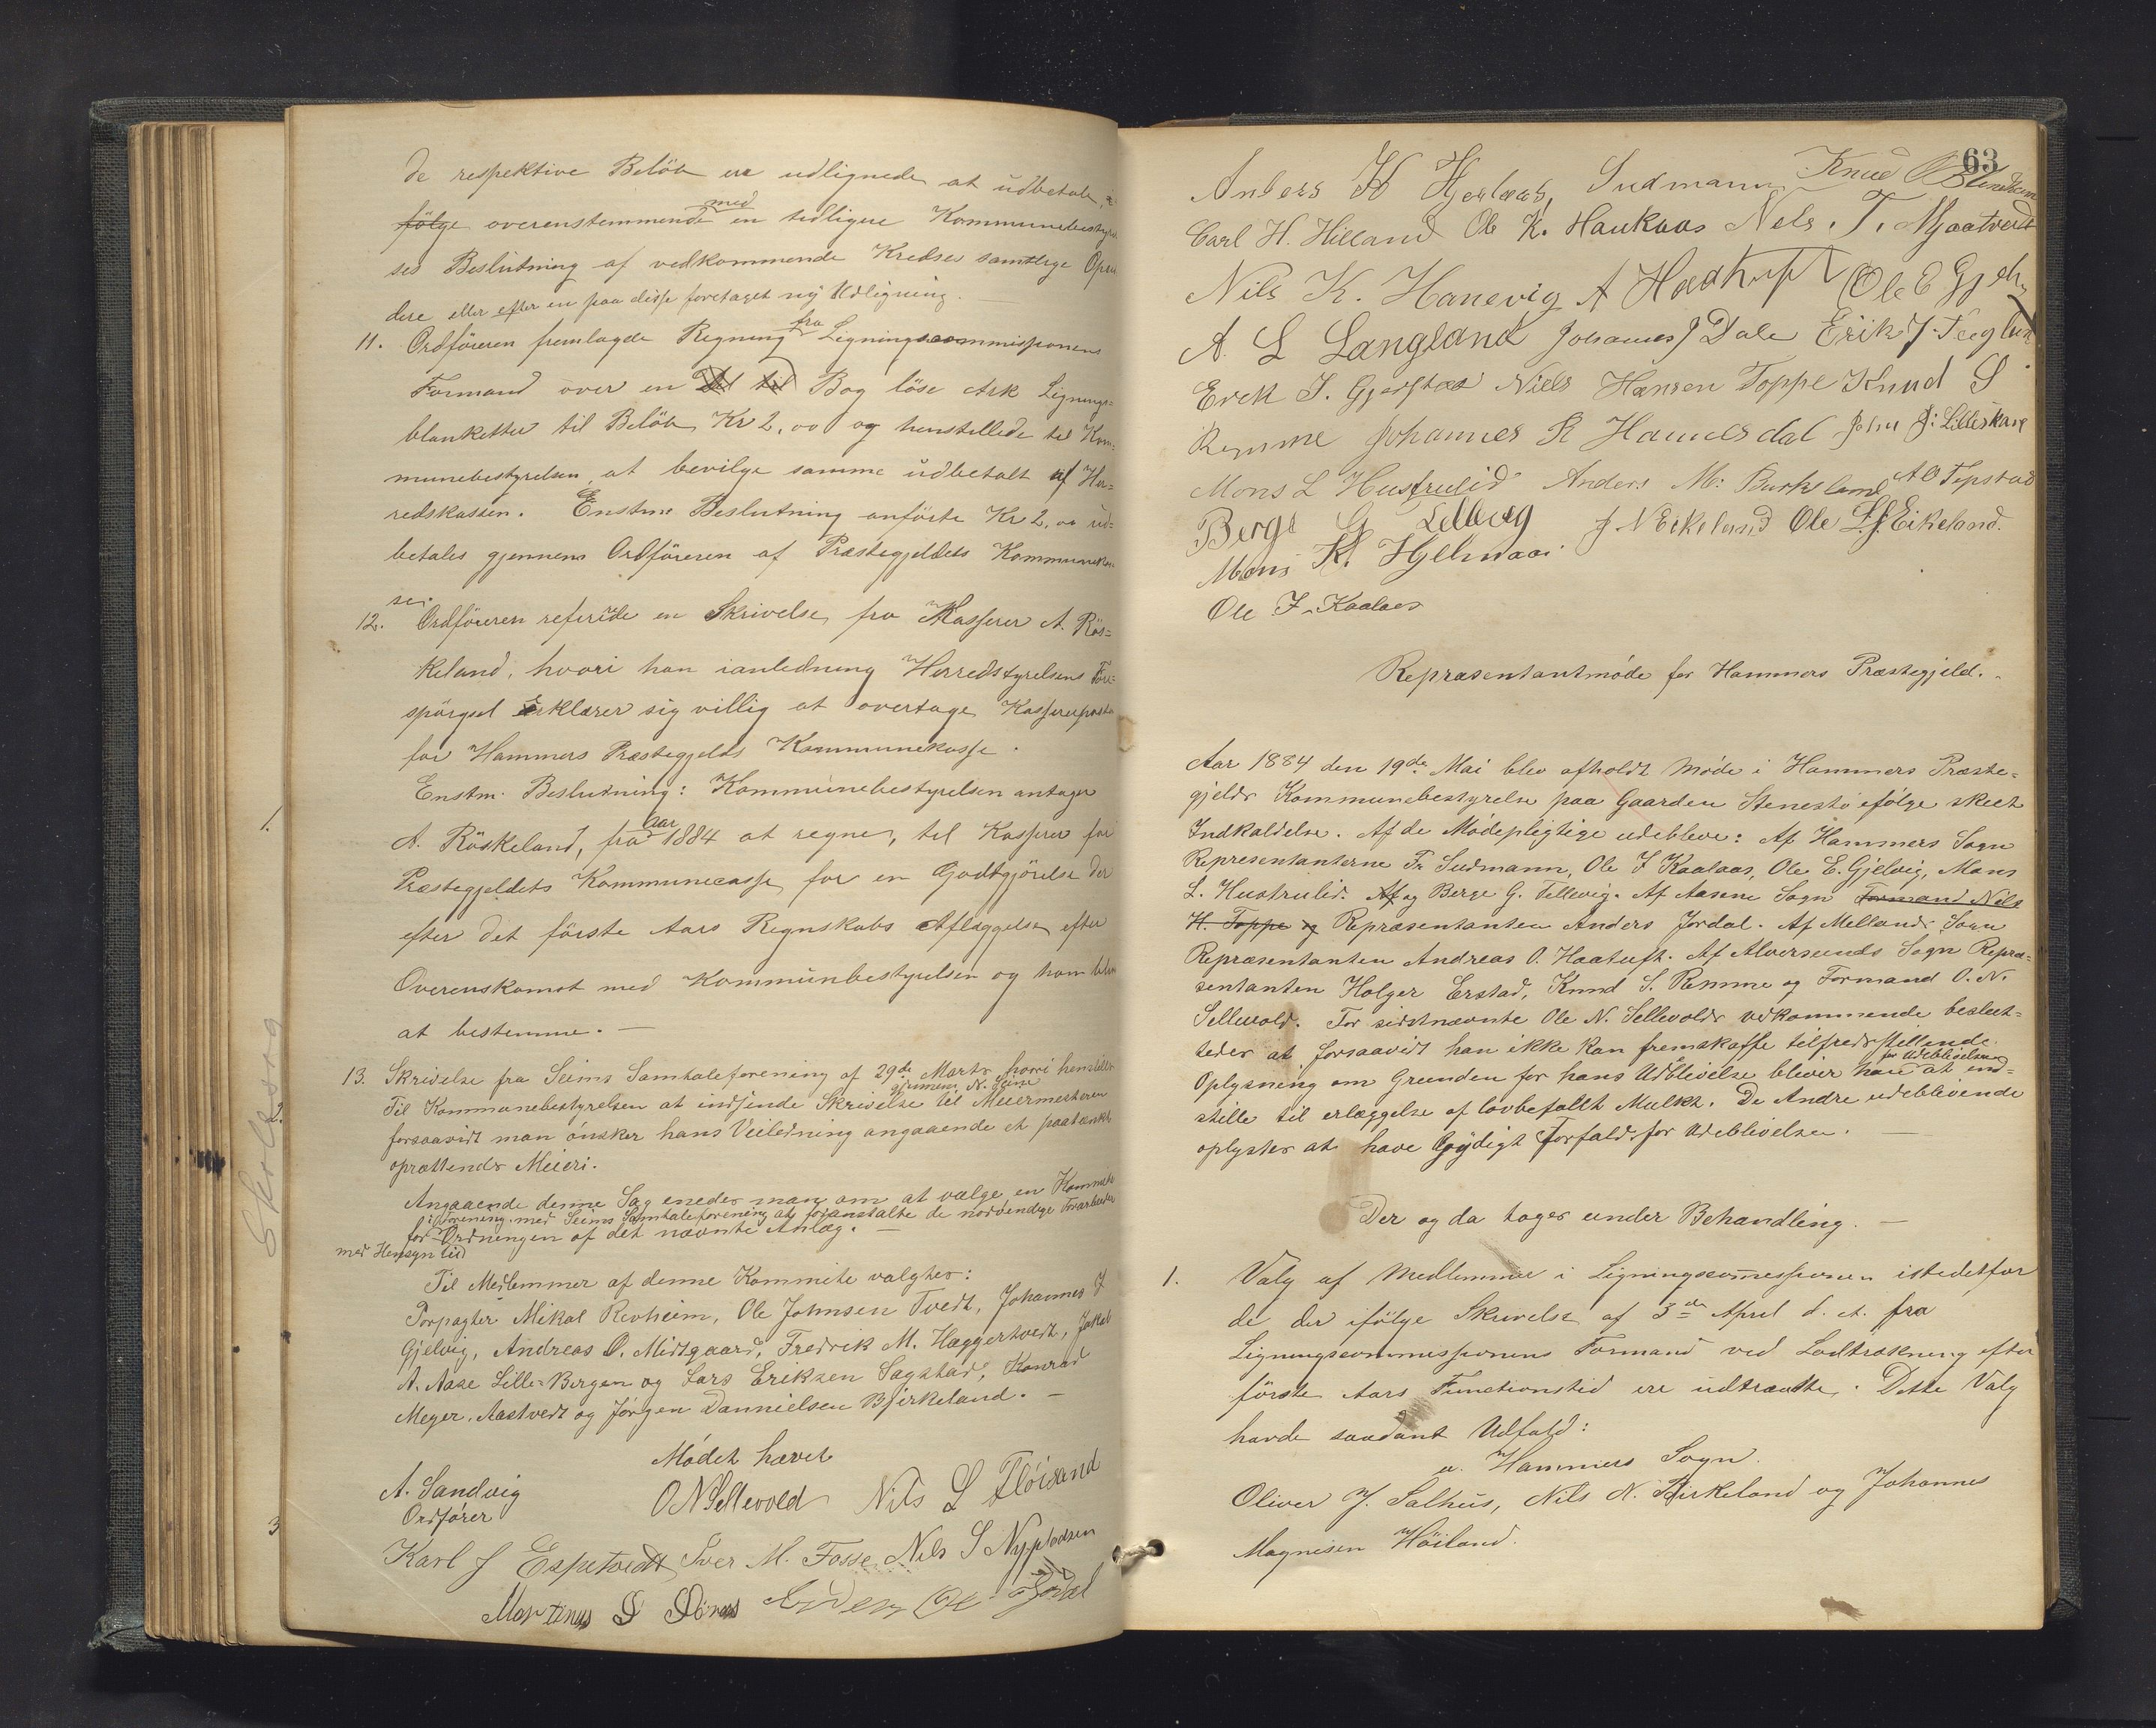 de respektive Belöb ere udlignede at udbetale,
fölge overenstemmende med en tidligere Kommunebesty
ses Beslutning af vedkommende Kredses samtlige
dere eller efter en paa disse foretaget ny Udligning.
11. Ordföreren fremlagde Regning fra Ligningscommissionens
Formand over en Bog löse Ark Lignings=
blanketter til Belöb Kr 2,00 og henstillede til Kom=
munebestyrelsen at bevilge samme udbetalt af Her=
redskassen. Enstm Beslutning anförte Kr 2,00 ud=
betales gjennem Ordföreren af Præstegjeldets Kommunekas
se.
12. Ordföreren refererede en Skrivelse fra Kasserer A. Rös=
keland, hvori han ianledning Herredstyrelsens Fore=
spörgsel Erklærer sig villig at overtage Kassererposten
for Hammers Præstegjelds Kommunekasse.
Enstm. Beslutning: Kommunebestyrelsen antager
A. Röskeland, fra Aar 1884 at regne, til Kasserer for
Præstegjeldets Kommunecasse for en Godtgjörelse der
efter det förste Aars Regnskabs Aflæggelse efter
Overenskomst med Kommunbestyrelsen og ham bliver
at bestemme. —
13. Skrivelse fra Seims Samtaleforening af 29de Marts hvori henstilles
Til Kommunebestyrelsen at indsende Skrivelse til Meiermesteren
gjennem N. Seim
forsaavidt man ønsker hans Veiledning angaaende et paatænkt
oprættende Meieri.
Angaaende denne Sag enedes man om at vælge en Kommite
i Forening med Seims Samtaleforening at foranstalte de nødvendige Forarbeider
for Ordningen af det nævnte Anlæg. —
med Hensyn til
Til Medlemmer af denne Kommite valgtes:
Forpagter Mikal Revheim, Ole Johnsen Tvedt, Johannes J
Gjelvig, Andreas O. Midtgaard, Fredrik M. Hæggertvedt, Jakob
A. Aase Lille=Bergen og Lars Eriksen Sagstad, Konrad
Meyer, Aastvedt og Jørgen Dannielsen Bjirkeland. —
Mødet hævet
A. Sandvig
Ordfører
O N Sellevold Nils L Fløisand
Karl J Espetvedt Iver M. Fosse Nils S
Martinus
1.
3
63
Anders H Hjertaas, Sudmann Knud
Carl H. Hilland Ole K. Haukaas Nels. T. Mjaatvedt
Nils K. Hanevig A Haatuft Ole E Gjelvig
A. L Langeland Johannes J Dale Erik J. Teglund
Erek J. Gjerstad Niels Hansen Toppe Knud S
Remme Johannes R Hamersdal John J: Lilleskare
Mons L Hustrulid Anders M: Burkeland A O Tepstad
Berge G Tellevig J N Eikeland Ole L. J. Eikeland.
Mons K. Hjelmaas
Ole J. Kaalaas
Repræsentantmøde for Hammers Præstegjeld.
Aar 1884 den 19de Mai blev afholdt Møde i Hammers Præste=
gjelds Kommunebestyrelse paa Gaarden Stenestø ifølge skeet
Indkaldelse. Af de Mødepligtige udebleve: Af Hammers Sogn
Representanterne Fr Sudmann, Ole J Kaalaas, Ole E. Gjelvig, Mons
L. Hustrulid. Af og Berge G. Tellevig. Af Aasene Sogn Formand Nils
H. Toppe og Repræsentanten Anders Jordal. Af Mellands Sogn
Repræsentanten Andreas O. Haatuft. Af Alversunds Sogn Repræ=
sentanten Holger Erstad, Knud S. Remme og Formand O. N.
Sellevold. For sidstnævnte Ole N. Sellevolds vedkommende beslut=
tedes at forsaavidt han ikke kan fremskaffe tilfredsstillende
Oplysning om Grunden for hans Udblivelse bliver han for Udeblivelsen at ind=
stille til erlæggelse af lovbefallt Mulkt. De Andre udeblivende
oplystes at have Gyldigt Forfald for Udeblivelsen. —
Der og da toges under Behandling. —
1. Valg af Medlemmer i Ligningscommissionen istedetfor
de der ifölge Skrivelse af 3de April d. A. fra
Ligningscommissionens Formand ved Lodtrækning efter
förste Aars Functionstid ere udtraadte. Dette Valg
havde saadant Udfald:
a. Hammers Sogn.
Oliver J. Salhus, Nils N. Birkeland og Johannes
Magnisen Höiland.